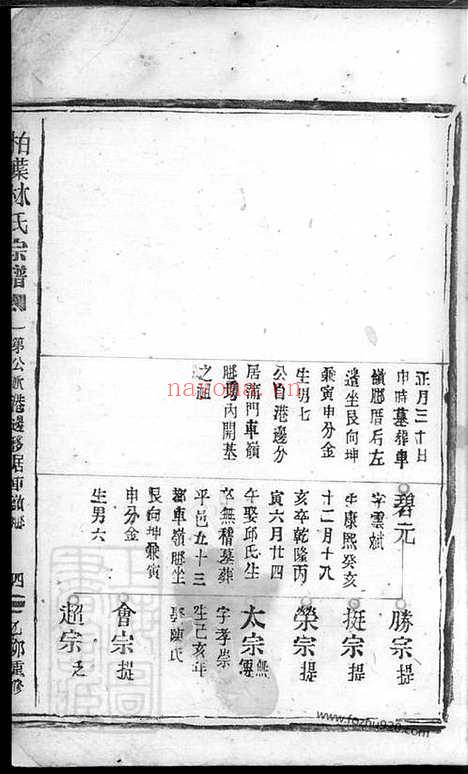 正月三十日
申時墓葬車
嶺腳厝后左
邊坐艮向坤
兼寅申分金
生男七
公自港邊分
居龍門車嶺
腳鄉內開基
之祖
碧元
字雲斌
生康熙癸亥
十二月十九
亥卒乾隆丙
寅六月廿四
午娶邱氏生
卒無稽墓葬
平邑五十三
都車嶺腳坐
艮向坤兼寅
申分金
生男六
勝宗 提
挺宗 提
榮宗 提
太宗 無傳
字孝崇
生己亥年
娶陳氏
會宗 提
超宗
柏葉林氏宗譜
四
nayona.cn
www.fozhu920.com